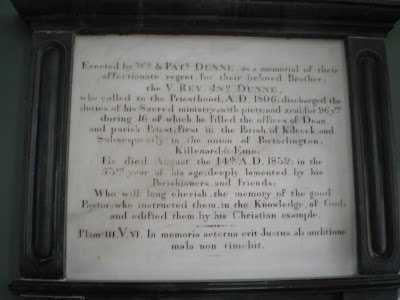 Erected by Wm & Patk DUNNE, as a memorial of their
affectionate regret, for their beloved Brother;
the V REV. JNO DUNNE,
who called to the Priesthood, A.D. 1806, discharged the
duties of his Sacred ministry, with piety and zeal for 26 yrs
during 16 of which he filled the offices of Dean,
and parish Priest; first in the Parish of Kilcock, and
Subsequently in the union of Portarlington;
Killenard & Emo.
He died August the 14th A.D. 1832; in the
year of his age; deeply lamented by his
Parishioners, and friends;
Who will long cherish, the memory of the good
Pastor; who instructed them, in the Knowledge, of God;
and edified them, by his Christian example.
Plsm III. V. VI. In memoria aeterna erit Justus ab auditione
mala non timebit.